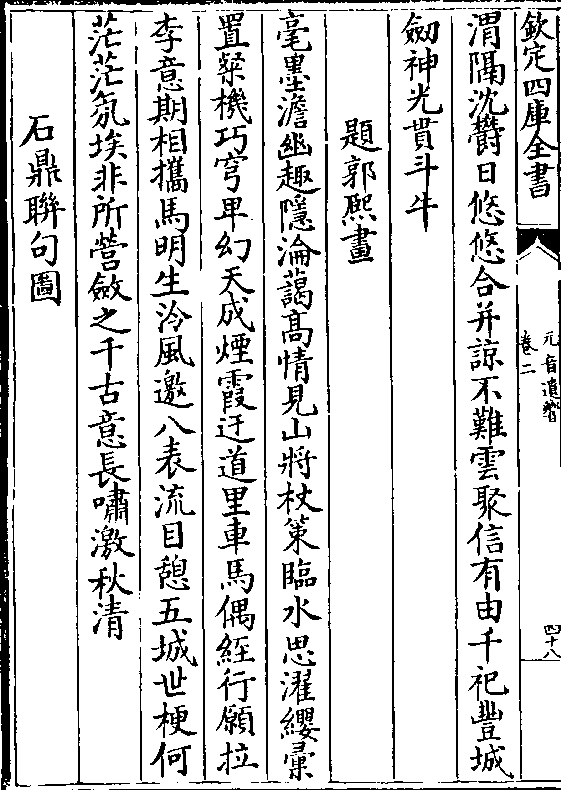 欽定四庫全書
元音遺響
卷二
四十八
渭隔沈欝日悠悠合并諒不難雲聚信有由千祀豐城
劒神光貫斗牛
題郭熙畫
毫墨澹幽趣隱淪藹髙情見山將杖策臨水思濯纓彙
置粲機巧穹卑幻天成煙霞迂道里車馬偶經行願拉
李意期相攜馬明生泠風邀八表流目憩五城世梗何
茫茫氛埃非所營斂之千古意長嘯激秋清
石鼎聯句圖